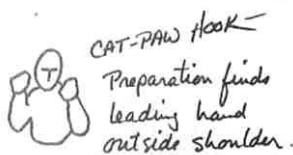 CAT-PAW HOOK-
Preparation finds
leading hand
outside shoulder.